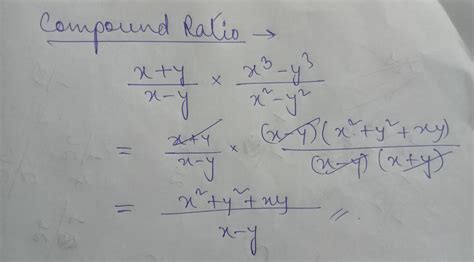 Compound Ratio →
(x+y)/(x-y) × (x³-y³)/(x²-y²)
= (x+y)/(x-y) × (x-y)(x²+y²+xy)/(x-y)(x+y)
= (x²+y²+xy)/(x-y) //.